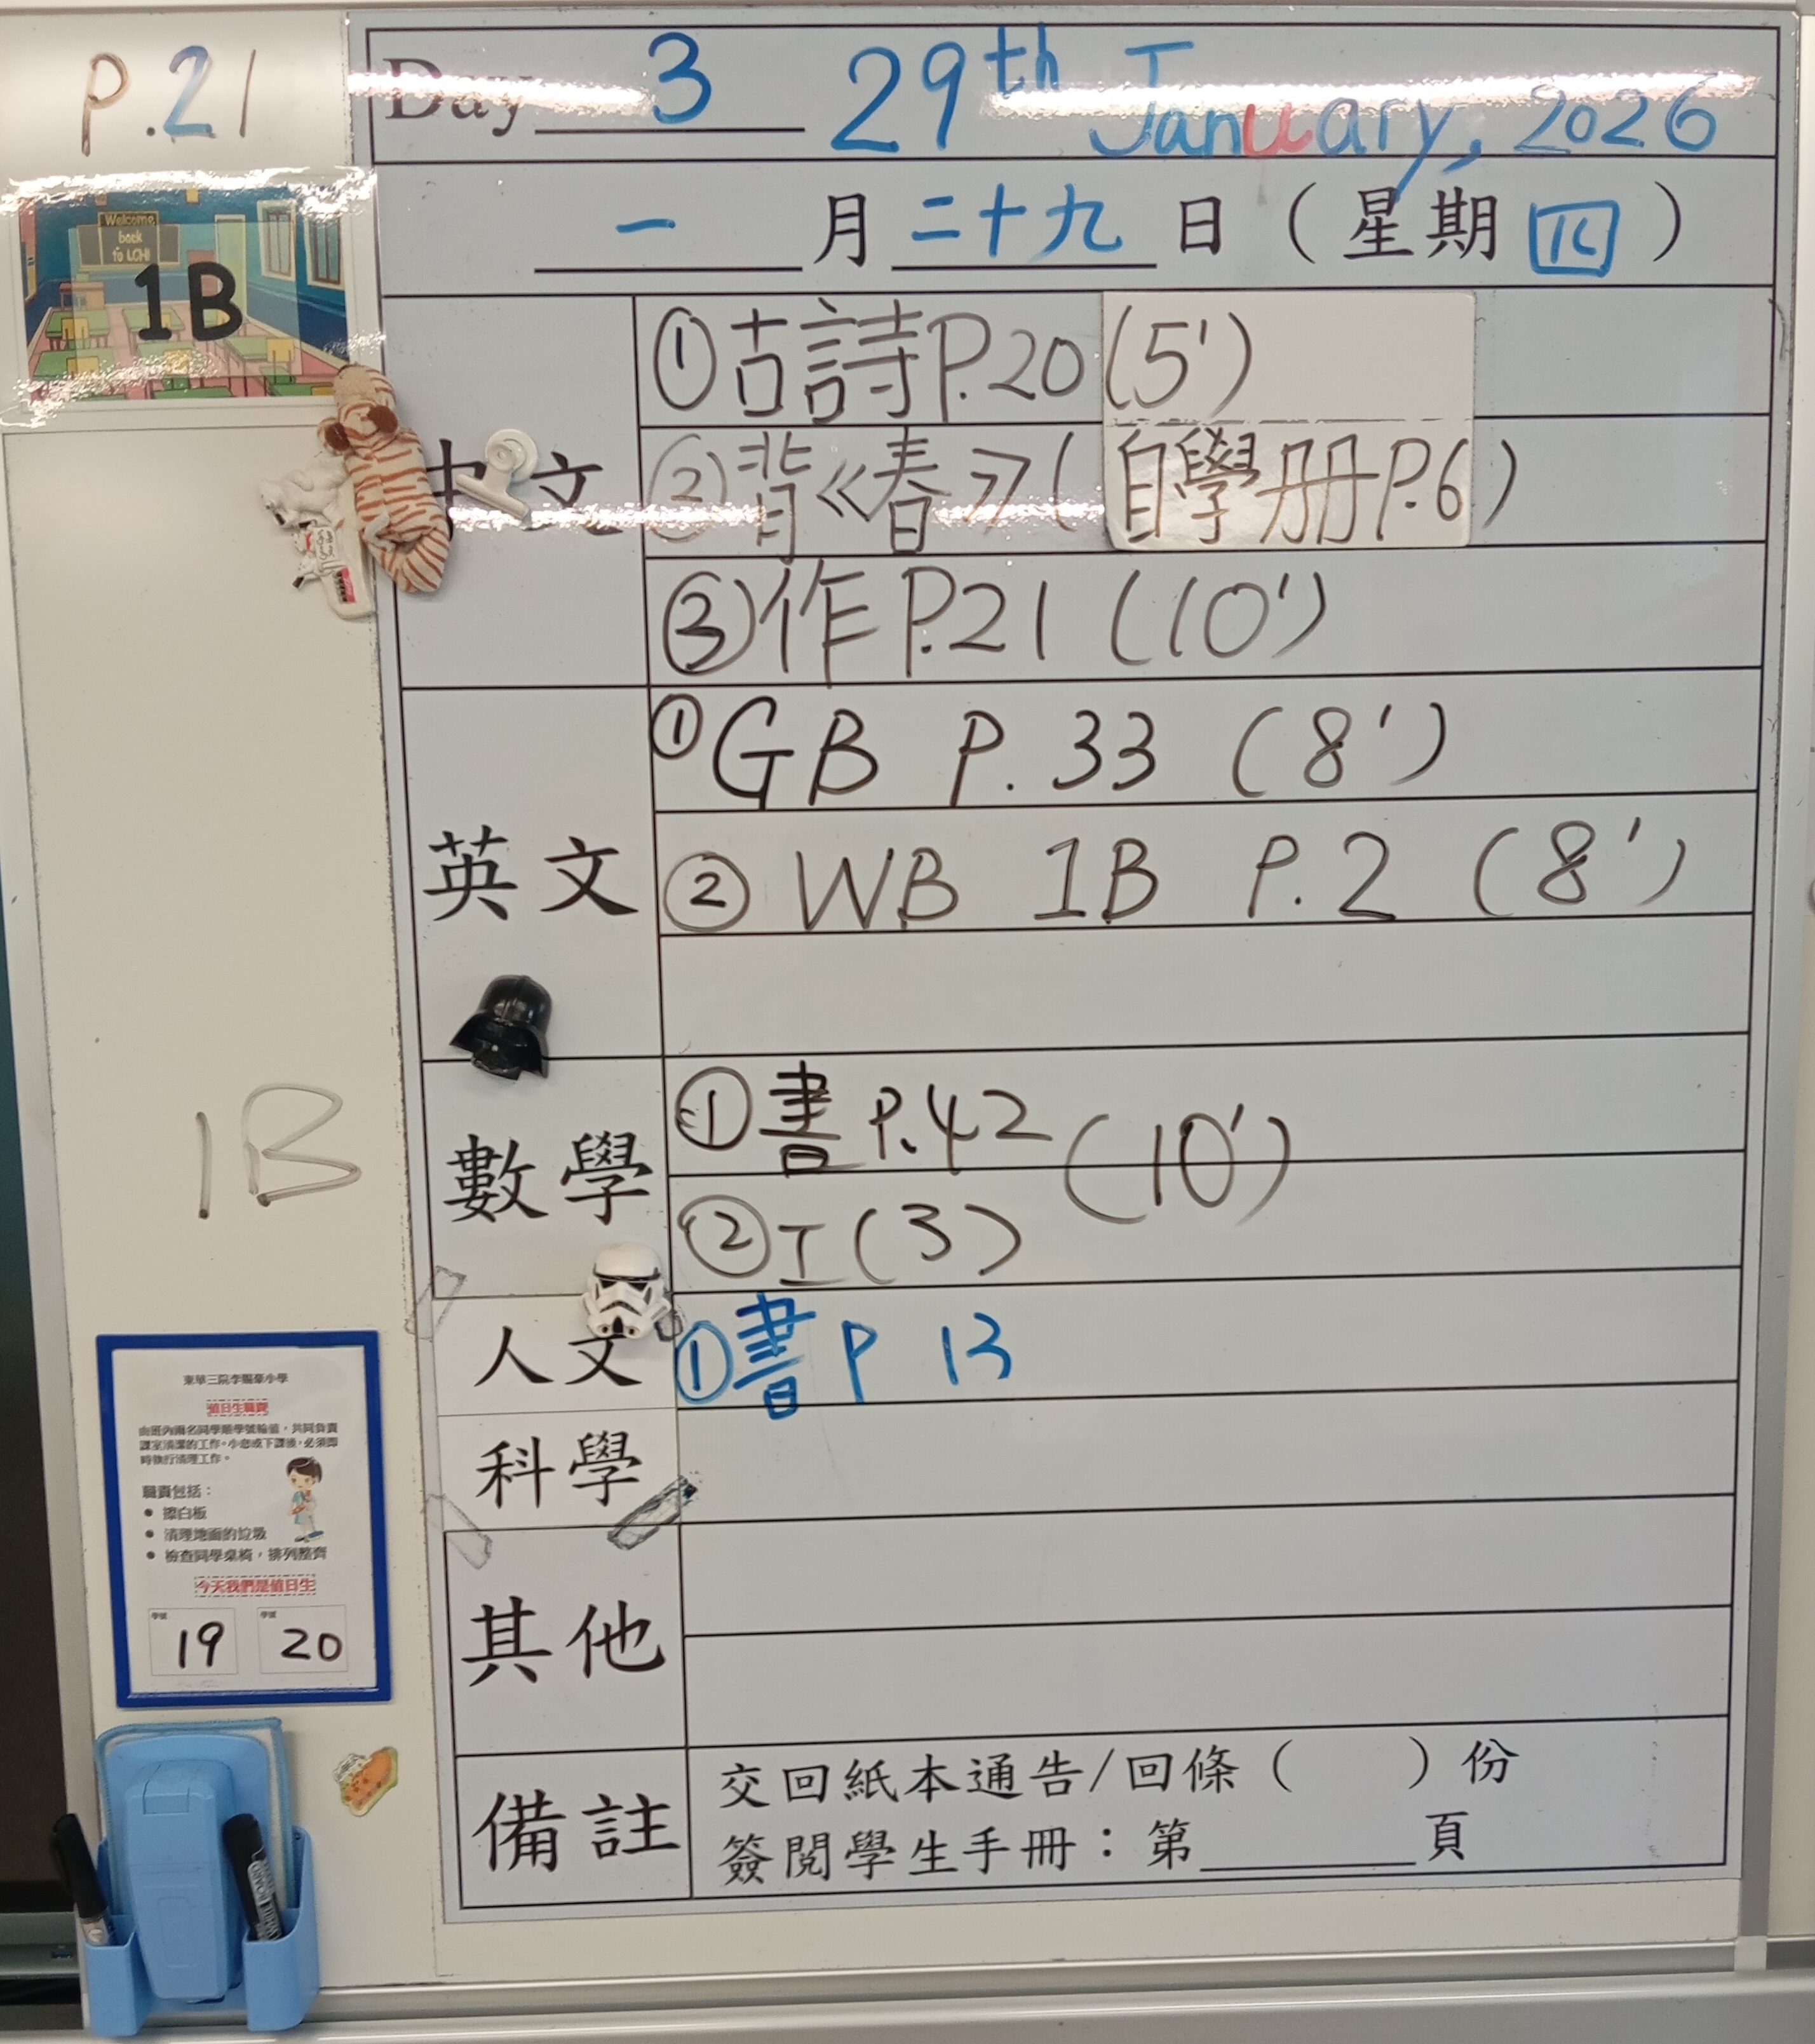 P.21
Day 3 29th January, 2026
一 月 二十九 日 ( 星期 四 )
Welcome
back
to LCH!
1B
中文
①古詩P.20(5')
②背《春》(自學册P.6)
③作P.21 (10')
英文
①GB P.33 (8')
② WB 1B P.2 (8')
數學
①書 P.42 (10')
②工(3)
1B
人文
①書P 13
科學
其他
備註
交回紙本通告/回條( )份
簽閱學生手冊：第 頁
東華三院李賜豪小學
值日生職責
由班內兩名同學順學號輪值，共同負責
課室清潔的工作。小息或下課後，必須即
時執行清理工作。
職責包括：
● 擦白板
● 清理地面的垃圾
● 檢查同學桌椅，排列整齊
今天我們是值日生
學號 學號
19 20